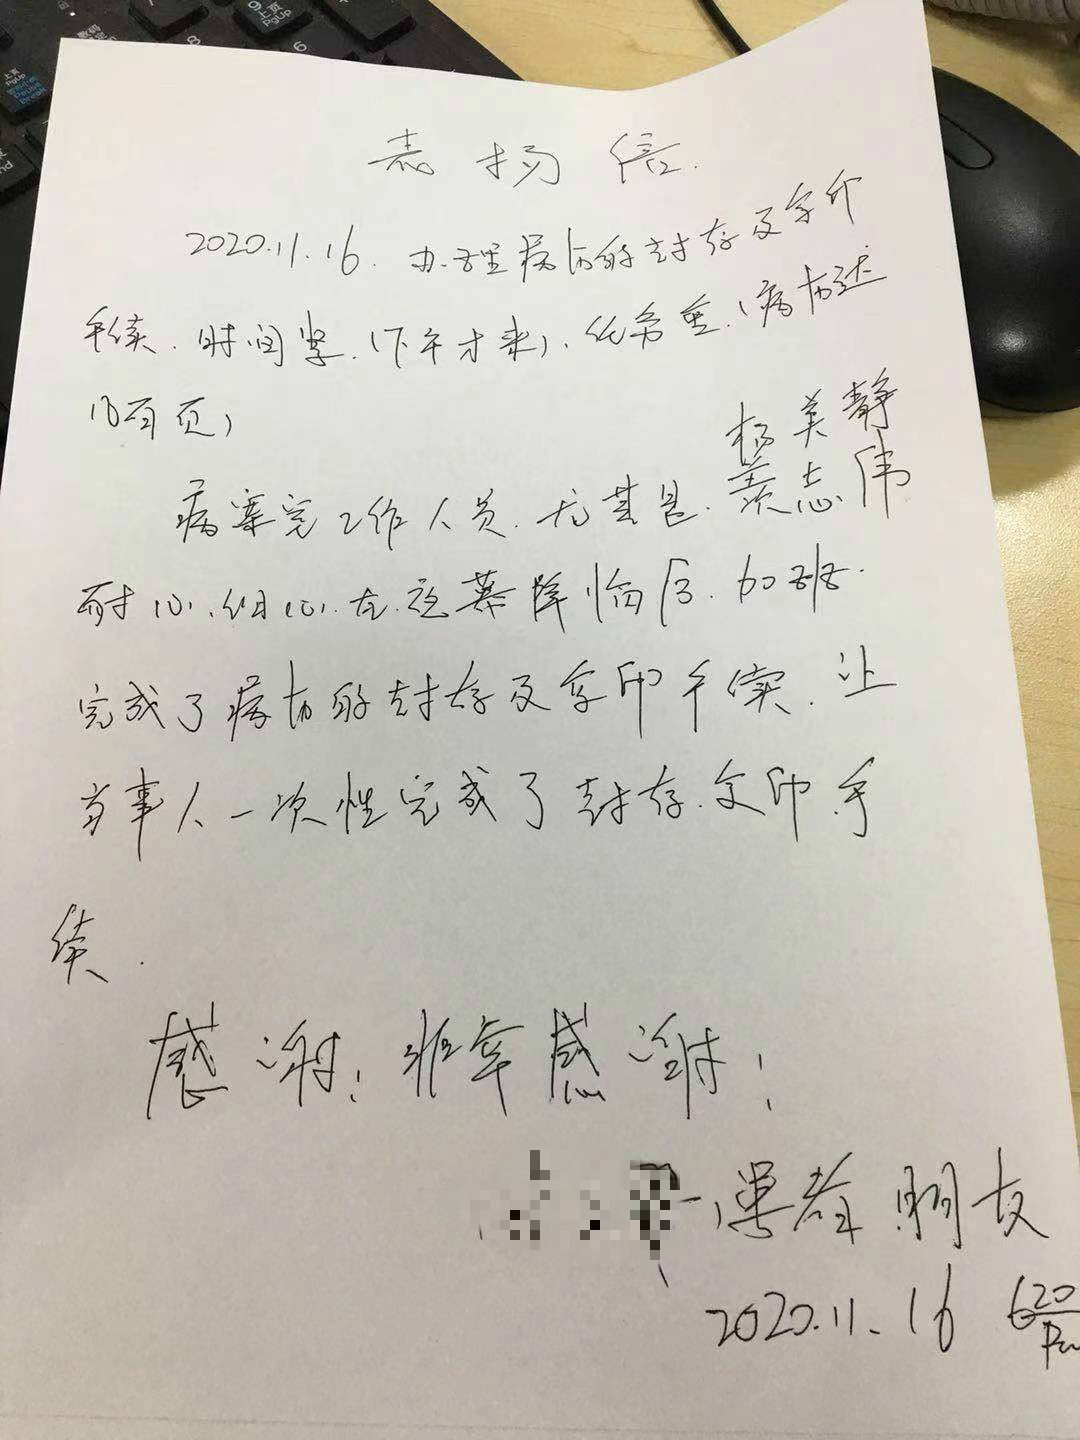 表扬信
2020.11.16.办理病历的封存及复印
手续.时间紧.(下午才来).任务重.(病历达
10百页)
杨美静
黄志伟
病案室工作人员.尤其是.
耐心.细心.在夜幕降临后.加班.
完成了病历的封存及复印手续.让
当事人一次性完成了封存.复印.手
续.
感谢!非常感谢!
(患者朋友
2020.11.16 6 20